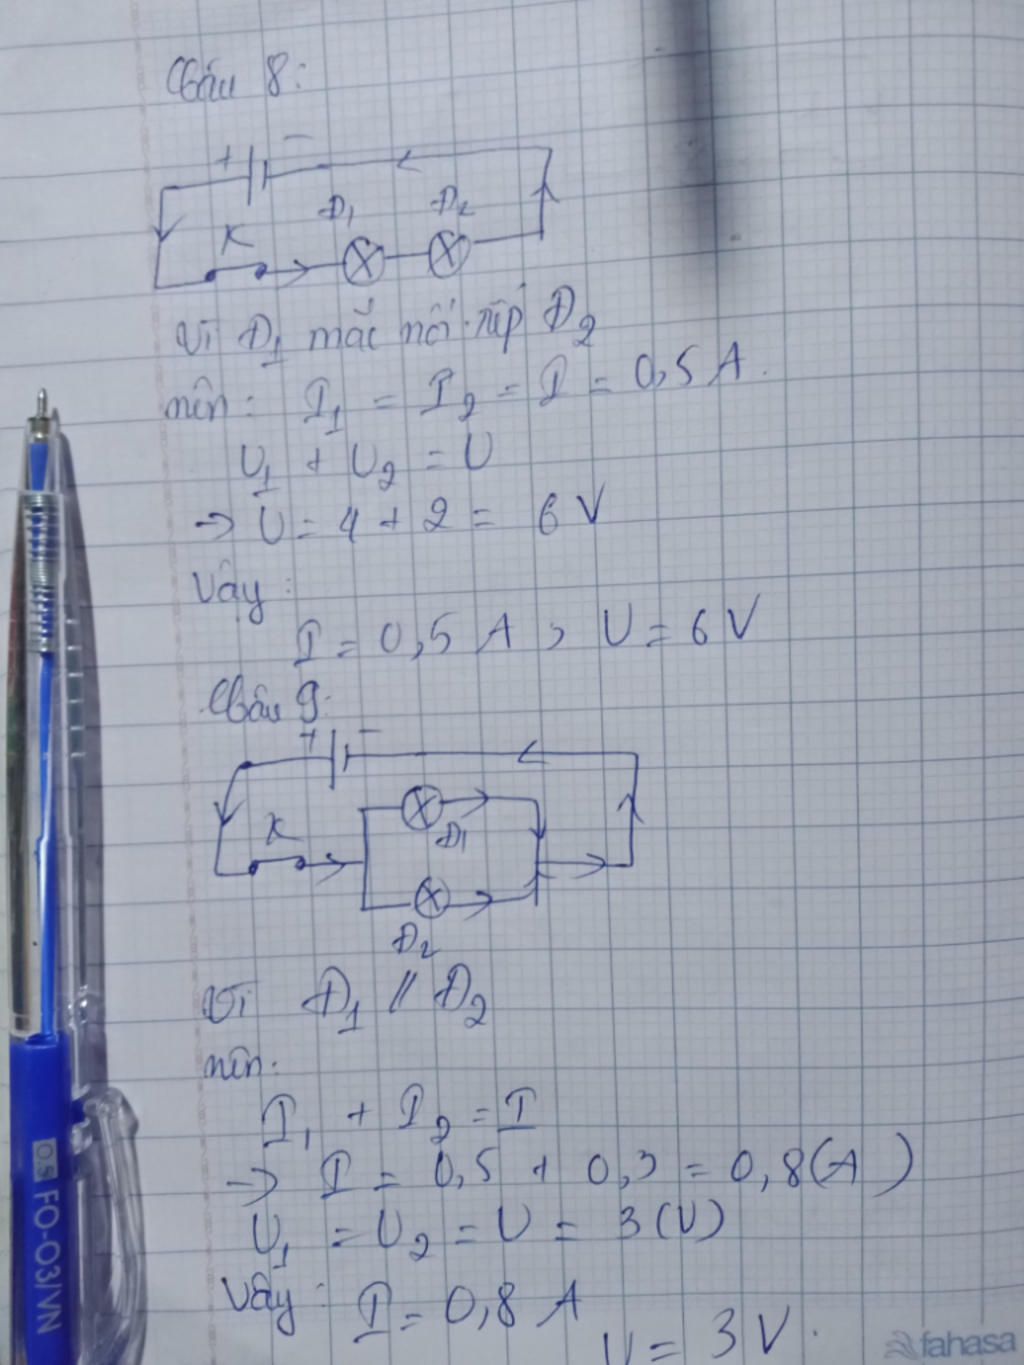 Câu 8:
+ −
K Đ1 Đ2
Vì Đ1 mắc nối tiếp Đ2
nên: I1 = I2 = I = 0,5 A.
U1 + U2 = U
→ U = 4 + 2 = 6 V
Vậy:
I = 0,5 A ; U = 6 V
Câu 9:
+ −
K Đ1
Đ2
Vì Đ1 // Đ2
nên:
I1 + I2 = I
→ I = 0,5 + 0,3 = 0,8 (A)
U1 = U2 = U = 3 (V)
Vậy: I = 0,8 A
U = 3 V.
0.5 FO-03/VN
fahasa